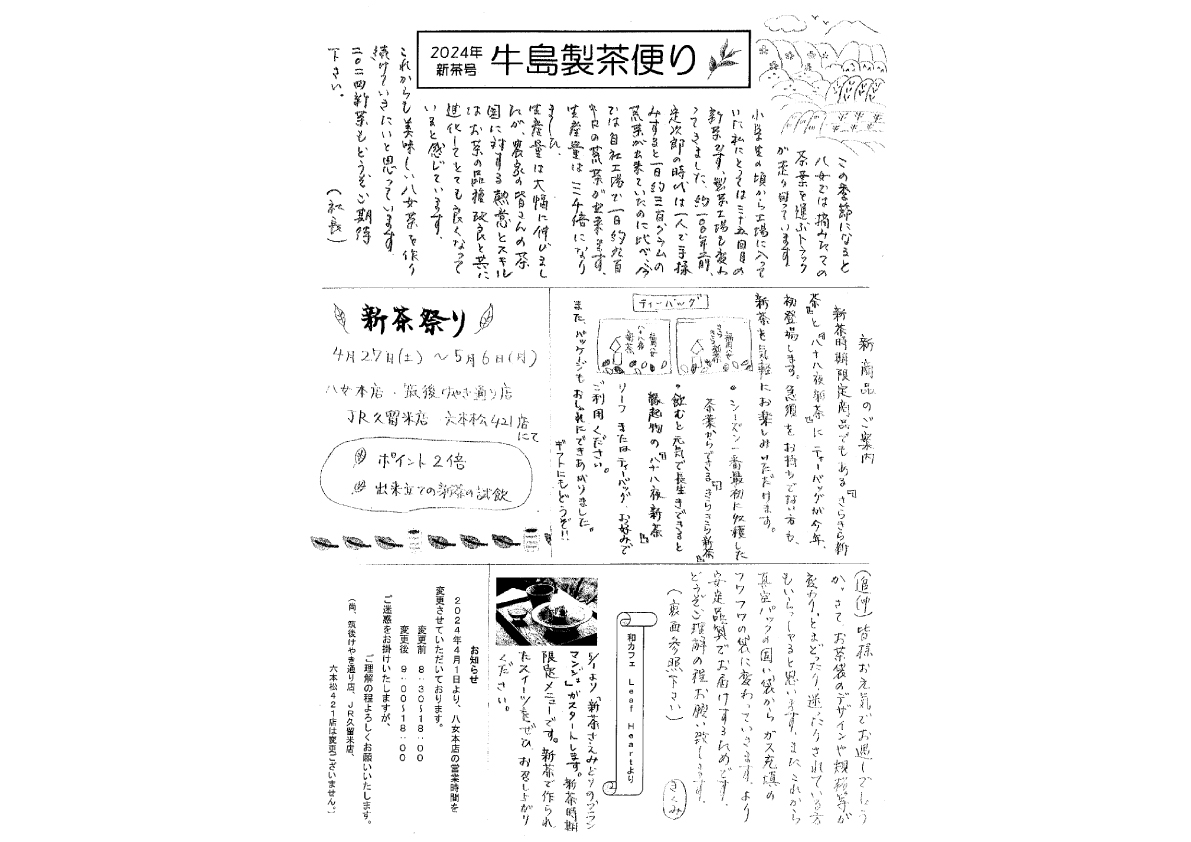 2024年
新茶号
牛島製茶便り
この季節になると
八女では摘みたての
茶葉を運ぶトラック
が走り回っています
小学生の頃から工場に入って
いた私にとっては三十五回目の
新茶です。製茶工場も変わ
ってきました。約一〇〇年前、
定次郎の時代は一人で手揉
みすると一日約三百グラムの
荒茶が出来ていたのに比べ、今
では自社工場で一日約九百
キロの荒茶が出来ます。
生産量は三千倍になり
ました。
生産量は大幅に伸びまし
たが、農家の皆さんの茶
園に対する熱意とスキル
はお茶の品種改良と共に
進化してとても良くなって
いると感じています。
これからも美味しい八女茶を作り
続けていきたいと思っています。
二〇二四新茶もどうぞご期待
下さい。
(社長)
新商品のご案内
新茶時期限定商品でもある『きらきら新
茶』と『八十八夜新茶』にティーバッグが今年、
初登場します。急須をお持ちでない方も、
新茶を気軽にお楽しみいただけます。
ティーバッグ
福岡八女
きらきら新茶
福岡八女
八十八夜
新茶
シーズン一番最初に収穫した
茶葉からできる『きらきら新茶』
飲むと元気で長生きできると
縁起物の『八十八夜新茶』
リーフまたはティーバッグ、お好みで
ご利用ください。
また、パッケージもおしゃれにできあがりました。
ギフトにもどうぞ!!
新茶祭り
4月27日(土)〜5月6日(月)
八女本店・筑後けやき通り店
JR久留米店 六本松421店
にて
ポイント2倍
出来立ての新茶の試飲
(追伸)皆様お元気でお過しでしょう
か。さて、お茶袋のデザインや規格等が
変わり、とまどったり迷ったりされている方
もいらっしゃると思います。またこれから
真空パックの固い袋からガス充填の
フワフワの袋に変わっていきます。より
安定品質でお届けするためです。
どうぞご理解の程お願い致します。
(裏面参照下さい)
きくみ
和カフェ Leaf Heartより
5/1より「新茶さえみどりのブラン
マンジェ」がスタートします。新茶時期
限定メニューです。新茶で作られ
たスイーツをぜひお召し上がり
ください。
お知らせ
2024年4月1日より、八女本店の営業時間を
変更させていただいております。
変更前 8:30〜18:00
変更後 9:00〜18:00
ご迷惑をお掛けいたしますが、
ご理解の程よろしくお願いいたします。
(尚、筑後けやき通り店、JR久留米店、
六本松421店は変更ございません。)